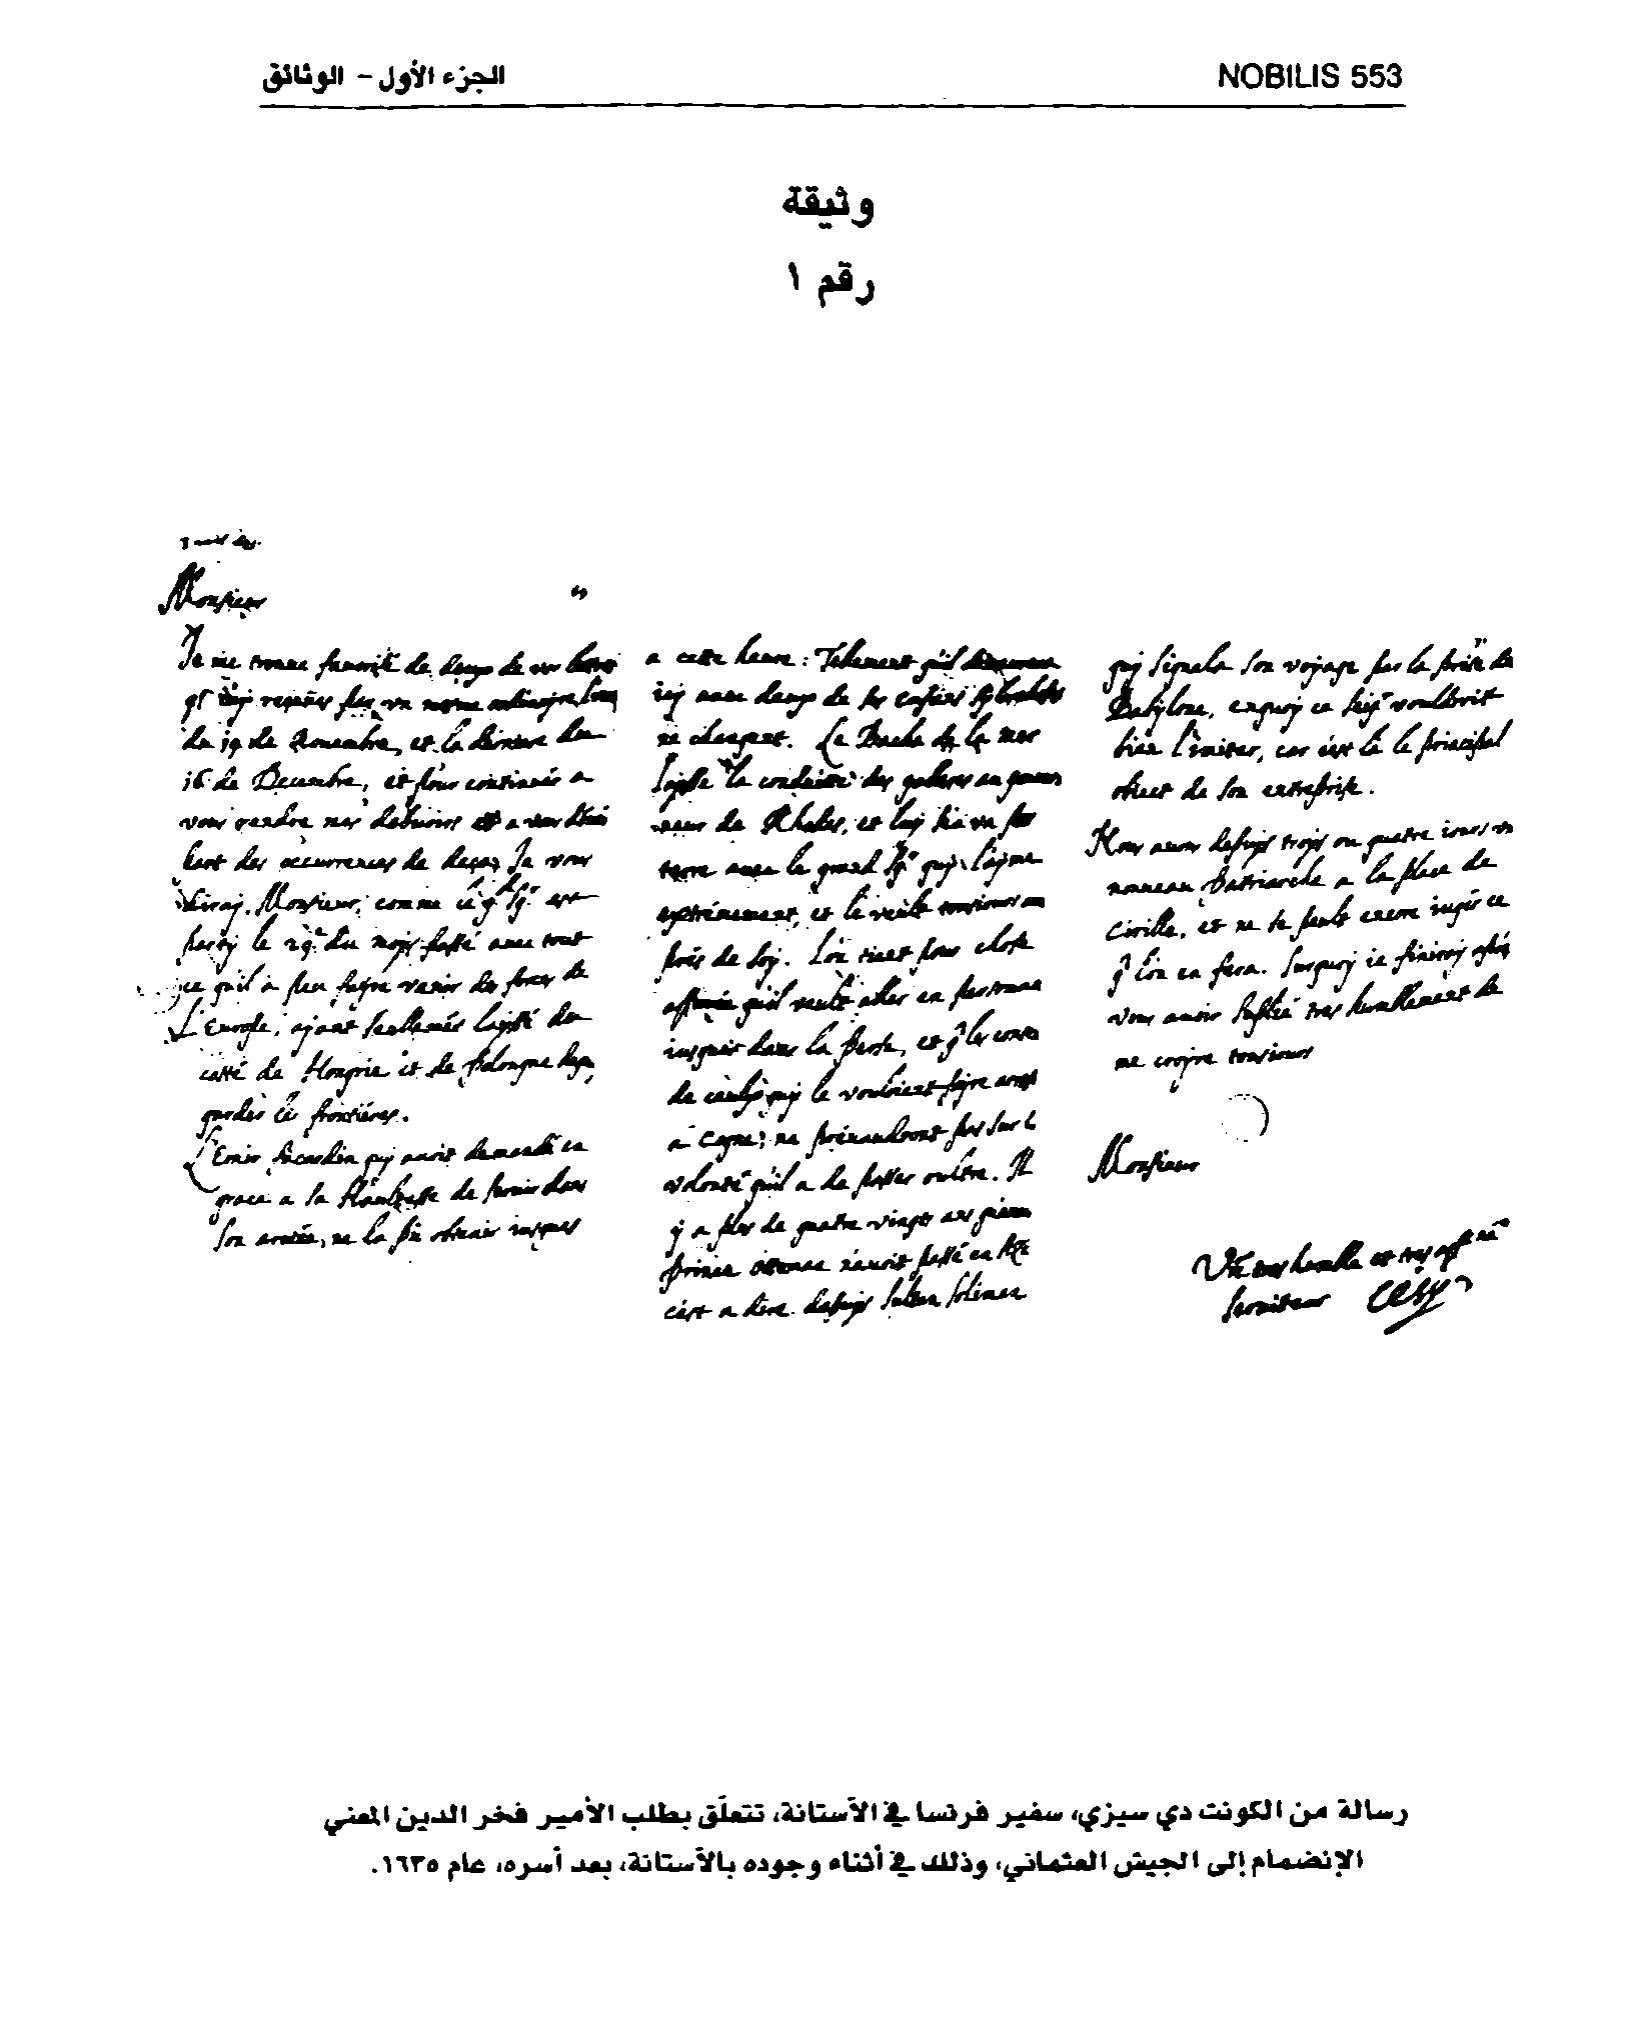 الجزء الأول - الوثائق
NOBILIS 553
وثيقة
رقم ١
Monsieur
Je me trouve favorisé de deux de vos lettres
receües par un mesme ordinaire l'une
du 19 de Novembre, et la derniere du
16 de Decembre, et pour continuer a
vous rendre mes debvoirs et a vous
part des occurrences de deça, Je vous
diray, Monsieur, comme ce gd Sgr est
party le 29e du moys passé avec tout
ce quil a peu fayre venir des forces de
L'Europe, ayant seullement layssé du
costé de Hongrie et de Pologne
garder les frontieres.
L'Emir facardin qui avoit demandé en
grace a sa Haultesse de servir dans
son armée, ne la pû obtenir jusques
a cette heure: Tellement quil demeurera
icy avec deux de ses enfans sy
ne changent. Le Bacha de la mer
laysse la conduitte des galeres au gouver
neur de Rhodes, et luy s'en va par
terre avec le grand Sgr quy l'ayme
extrémement, et le veult tousiours au
prés de soy. L'on tient pour chose
asseurée quil veult aller en personne
iusques dans la Perse, et q̃ les
de ceulx quy le vouloient fayre
a Cogne, ne prévaudront pas sur la
volonté quil a de passer oultre. Il
y a plus de quatre vingts ans
prince ottoman n'avoit passé en
c'est a dire depuys Sultan Soliman
quy signala son voyage par la prise de
Babylone, enquoy ce voulderoit
bien l'imiter, car c'est là le principal
obiect de son entreprise.
Nous avons depuys troys ou quatre iours un
nouveau Patriarche a la place de
Cirille, et ne se peult encore iuger ce
q̃ l'on en fera. Surquoy ie finiray aprés
vous avoir suplié tres humblement de
me croyre tousiours
Monsieur
Vre tres humble et tres affné
serviteur Cesy
رسالة من الكونت دي سيزي، سفير فرنسا في الآستانة، تتعلّق بطلب الأمير فخر الدين المعني
الإنضمام إلى الجيش العثماني، وذلك في أثناء وجوده بالآستانة، بعد أسره، عام ١٦٣٥.